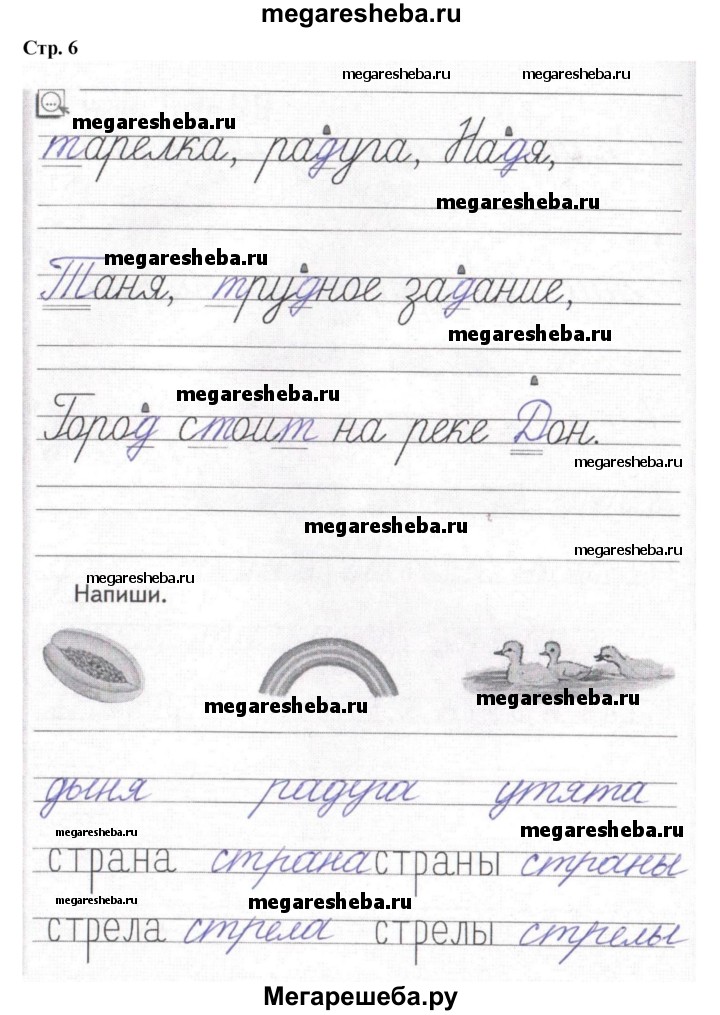 megaresheba.ru
Стр. 6
megaresheba.ru megaresheba.ru
megaresheba.ru
тарелка, радуга, Надя,
megaresheba.ru
megaresheba.ru
Таня, трудное задание,
megaresheba.ru
megaresheba.ru
Город стоит на реке Дон.
megaresheba.ru
megaresheba.ru
megaresheba.ru
megaresheba.ru
Напиши.
megaresheba.ru megaresheba.ru
дыня радуга утята
megaresheba.ru megaresheba.ru
страна страна страны страны
megaresheba.ru megaresheba.ru
стрела стрела стрелы стрелы
Мегарешеба.ру